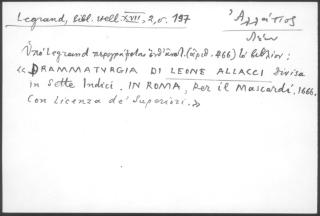 Legrand, bibl. hell. XVII, 2, σ. 197
Ἀλλάτιος
Λέων
Ὑπὸ Legrand περιγράφεται ἐνθ' ἀνωτ. (ἀριθ. 466) τὸ βιβλίον:
«DRAMMATURGIA DI LEONE ALLACCI divisa
in Sette Indici. IN ROMA, per il Mascardi, 1666.
Con Licenza de' Superiori.»